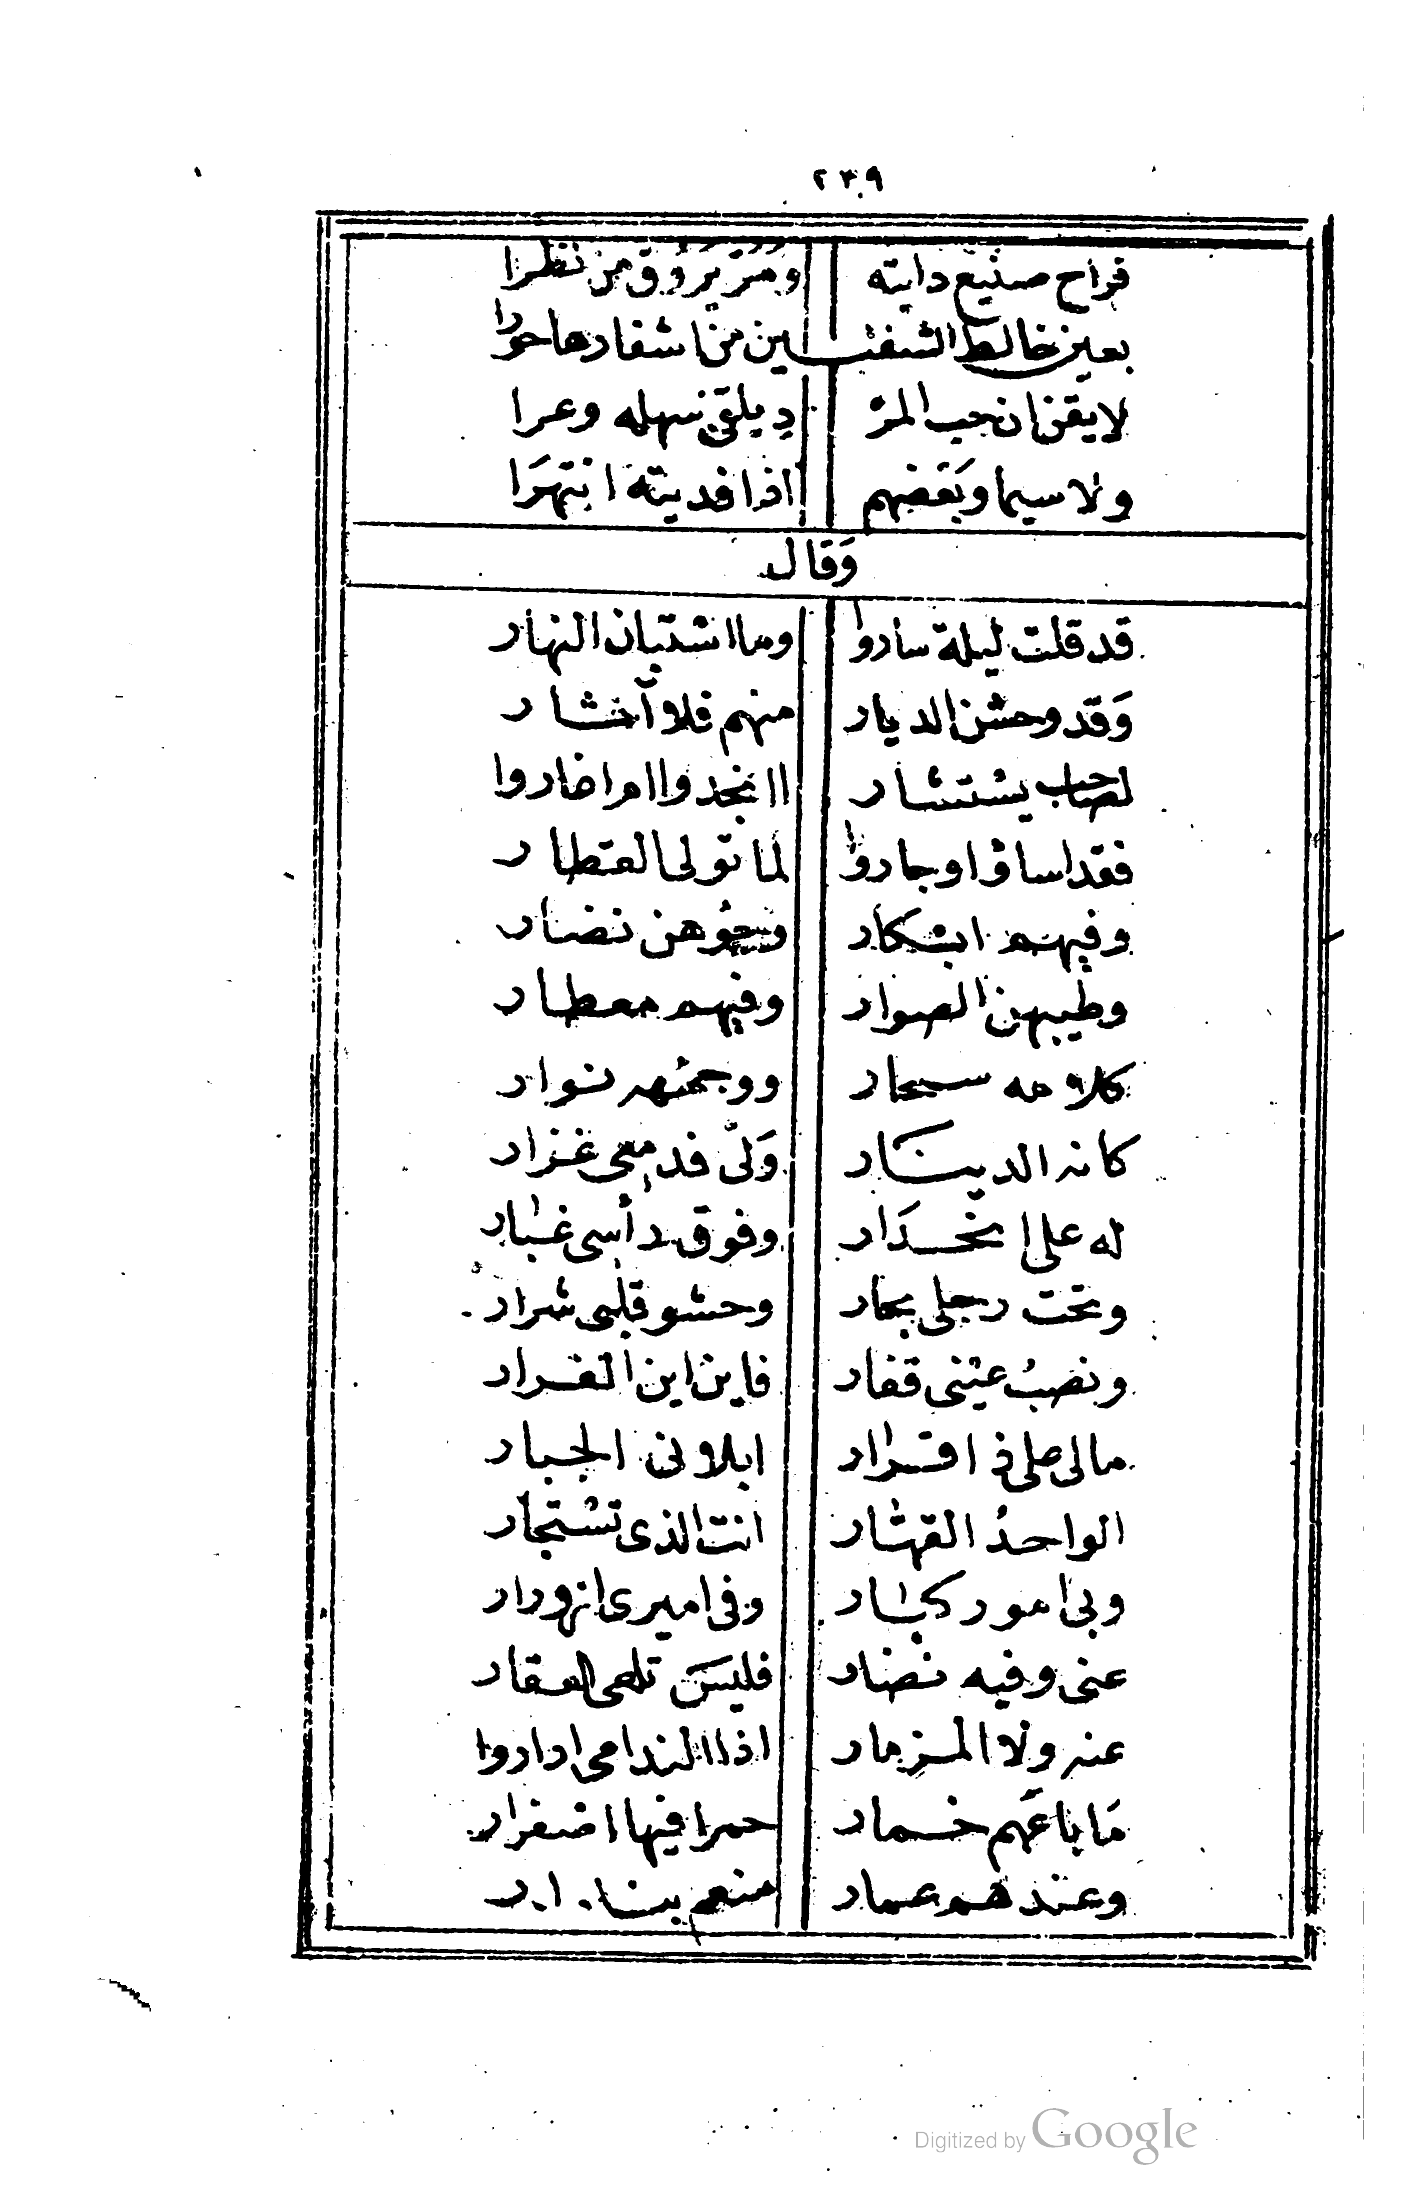 ٢٣٩
فراح صنيع دايته ومر يروق من نظرا
بعين خالط التفتيين من اشفارها حورا
لا يقن ان حب المر ديلقى سهله وعرا
ولا سيما وبعضهم اذا فديته انتهرا
وقال
قد قلت ليلة ساروا وما استبان النهار
وقد وحشن الديار منهم فلا آخشار
لصاحب يستشار اانجدوا ام اغاروا
فقد اساؤا وجاروا لما تولى القطار
وفيهم ابكار وجوهن نضار
وطيبهن الصوار وفيهم معطار
كلامه سحار ووجهه نوار
كانه الدينار ولى قدمعى غزار
له على انحدار وفوق رأسى غبار
وتحت رجلى بحار وحشو قلبى شرار
ونصب عينى قفار فاين اين الفرار
مالى على ذ اقترار ابلانى الجبار
الواحد القهار انت الذى تستجار
وبى امور كبار وفى اميرى ازورار
عنى وفيه نضار فليس تلهى العقار
عنه ولا المزمار اذا الندامى اداروا
ما باعهم خمار حمرا فيها اصفرار
وعندهم عمار منعم
Digitized by Google